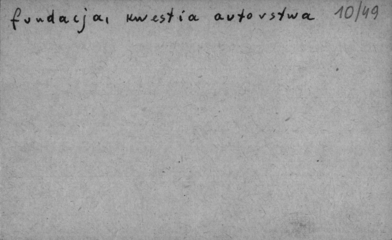 fundacja, kwestia autorstwa 10/49